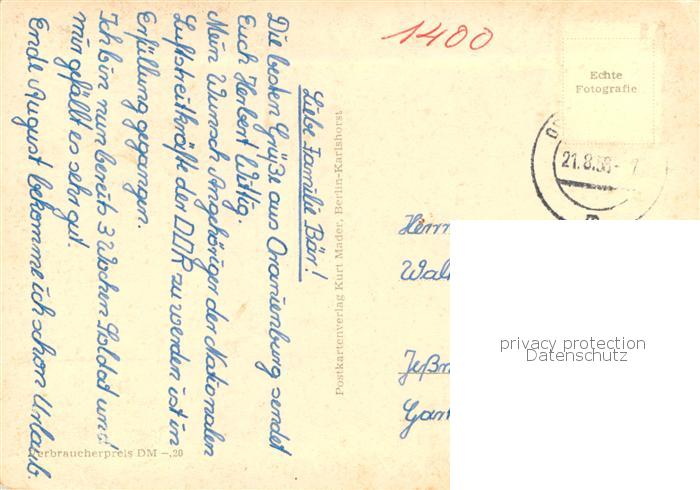 Liebe Familie Bär!
Die besten Grüße aus Oranienburg sendet
Euch Herbert Wittig.
Mein Wunsch Anghöriger der Nationalen
Luftstreitkräfte der DDR zu werden ist in
Erfüllung gegangen.
Ich bin nun bereits 3 Wochen Soldat und
mir gefällt es sehr gut.
Ende August bekomme ich schon Urlaub.
Verbraucherpreis DM -,20
Postkartenverlag Kurt Mader, Berlin-Karlshorst
1400
Echte
Fotografie
21.8.56-
Herrn
Wal
Jeßn
Gar
privacy protection
Datenschutz